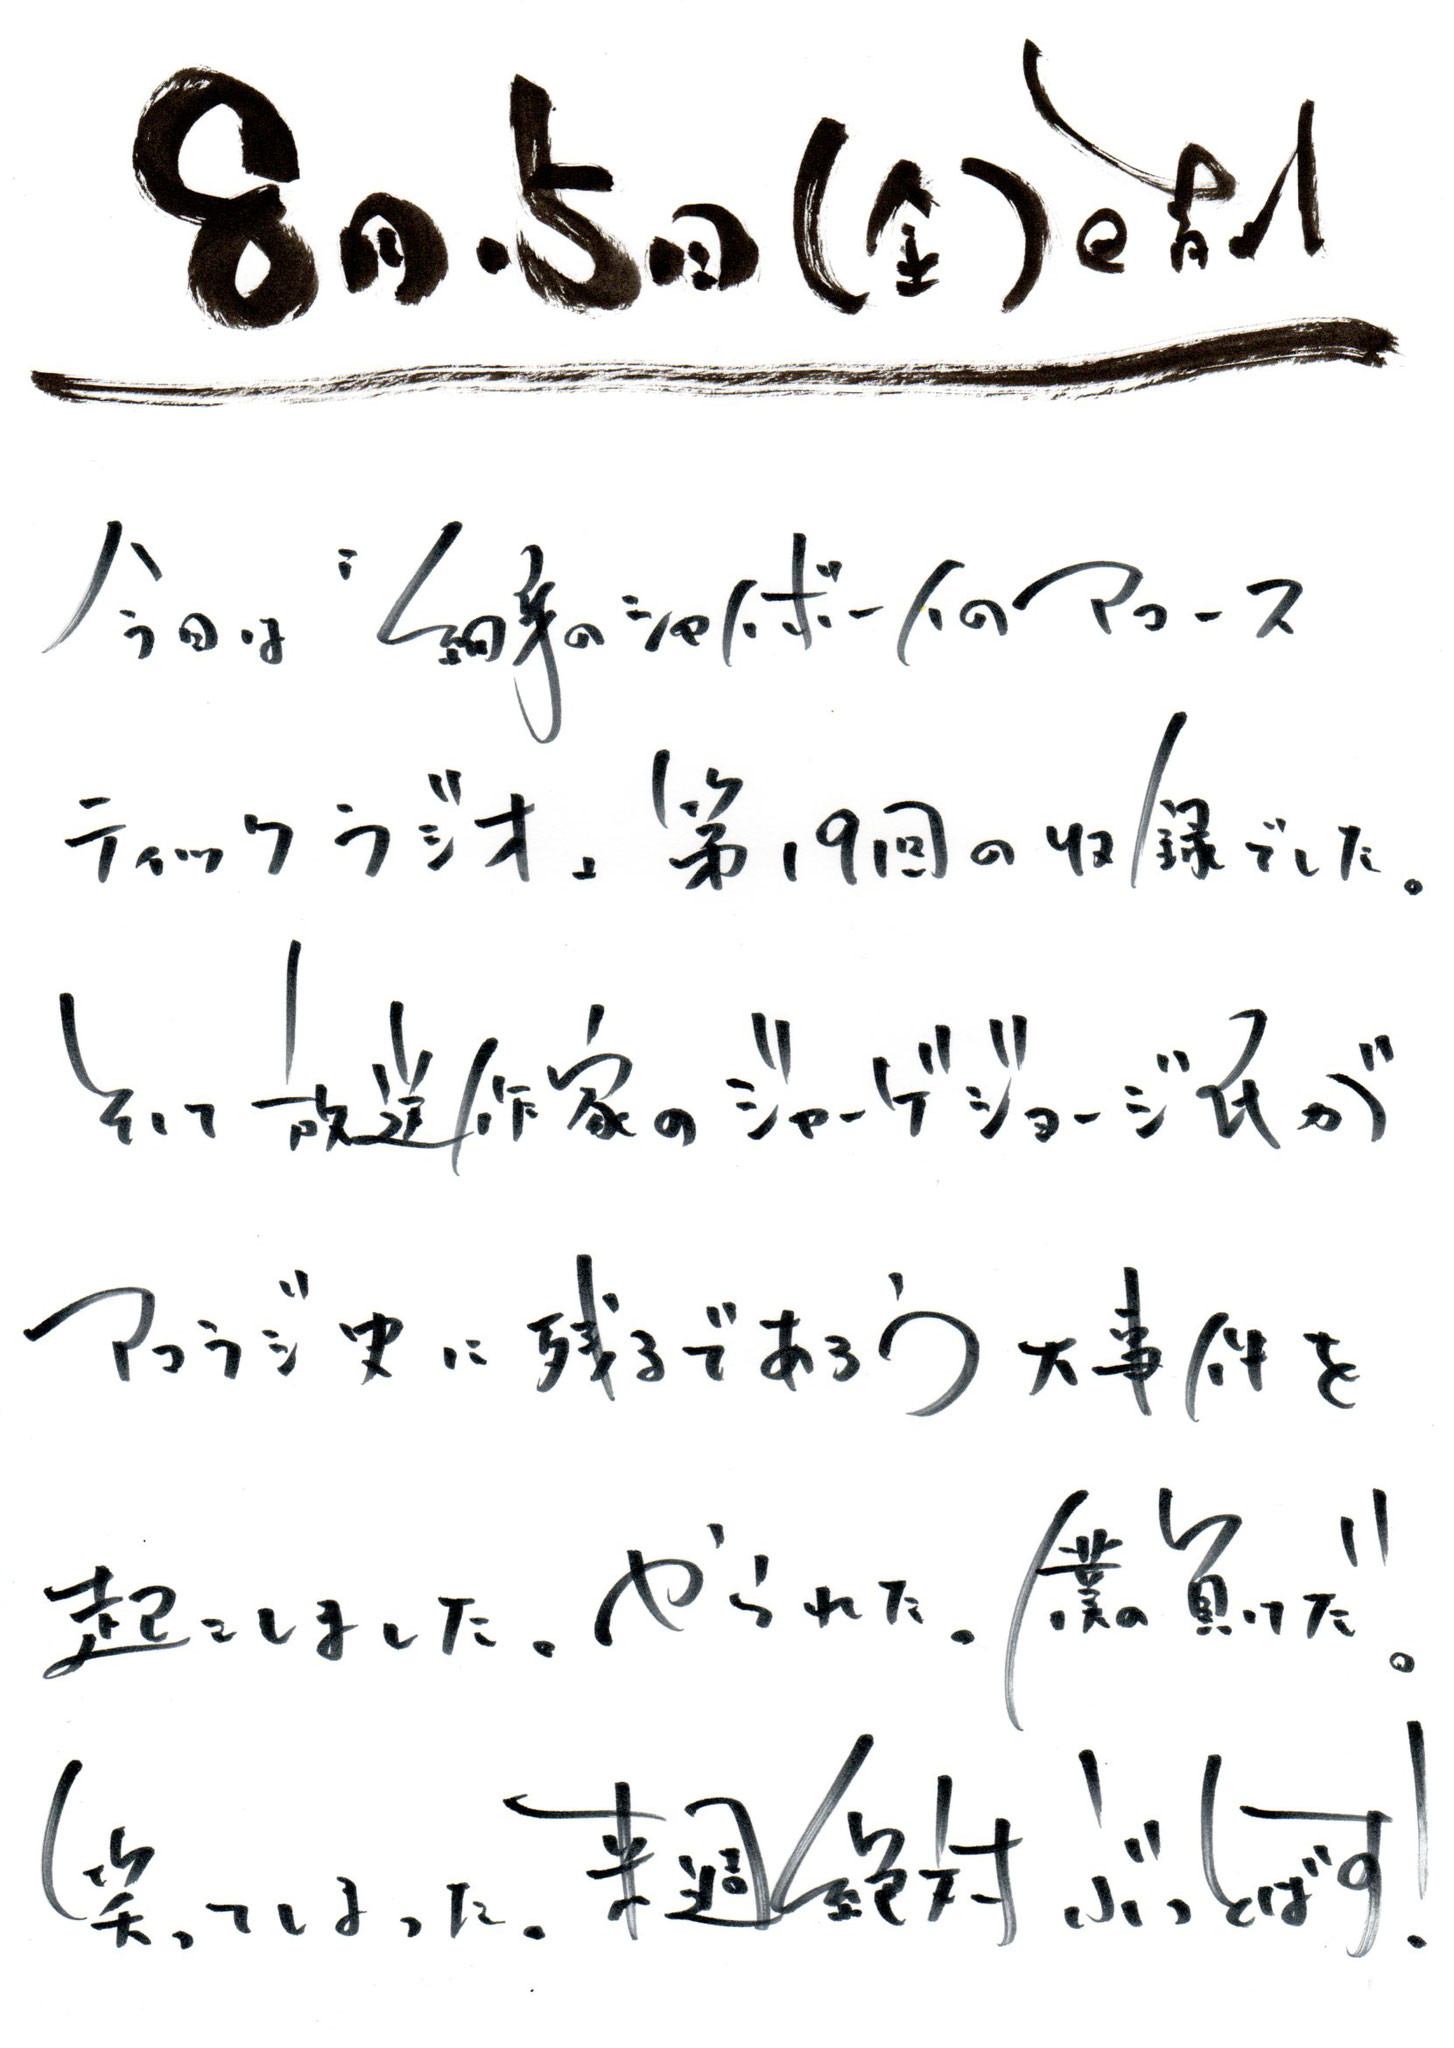 8月.5日(金)晴れ
今日は「細身のシャイボーイのアコース
ティックラジオ」第19回の収録でした。
そして放送作家のジャーゲジョージ氏が
アコラジ史に残るであろう大事件を
起こしました。やられた。僕の負けだ。
笑ってしまった。来週絶対ぶっとばす!